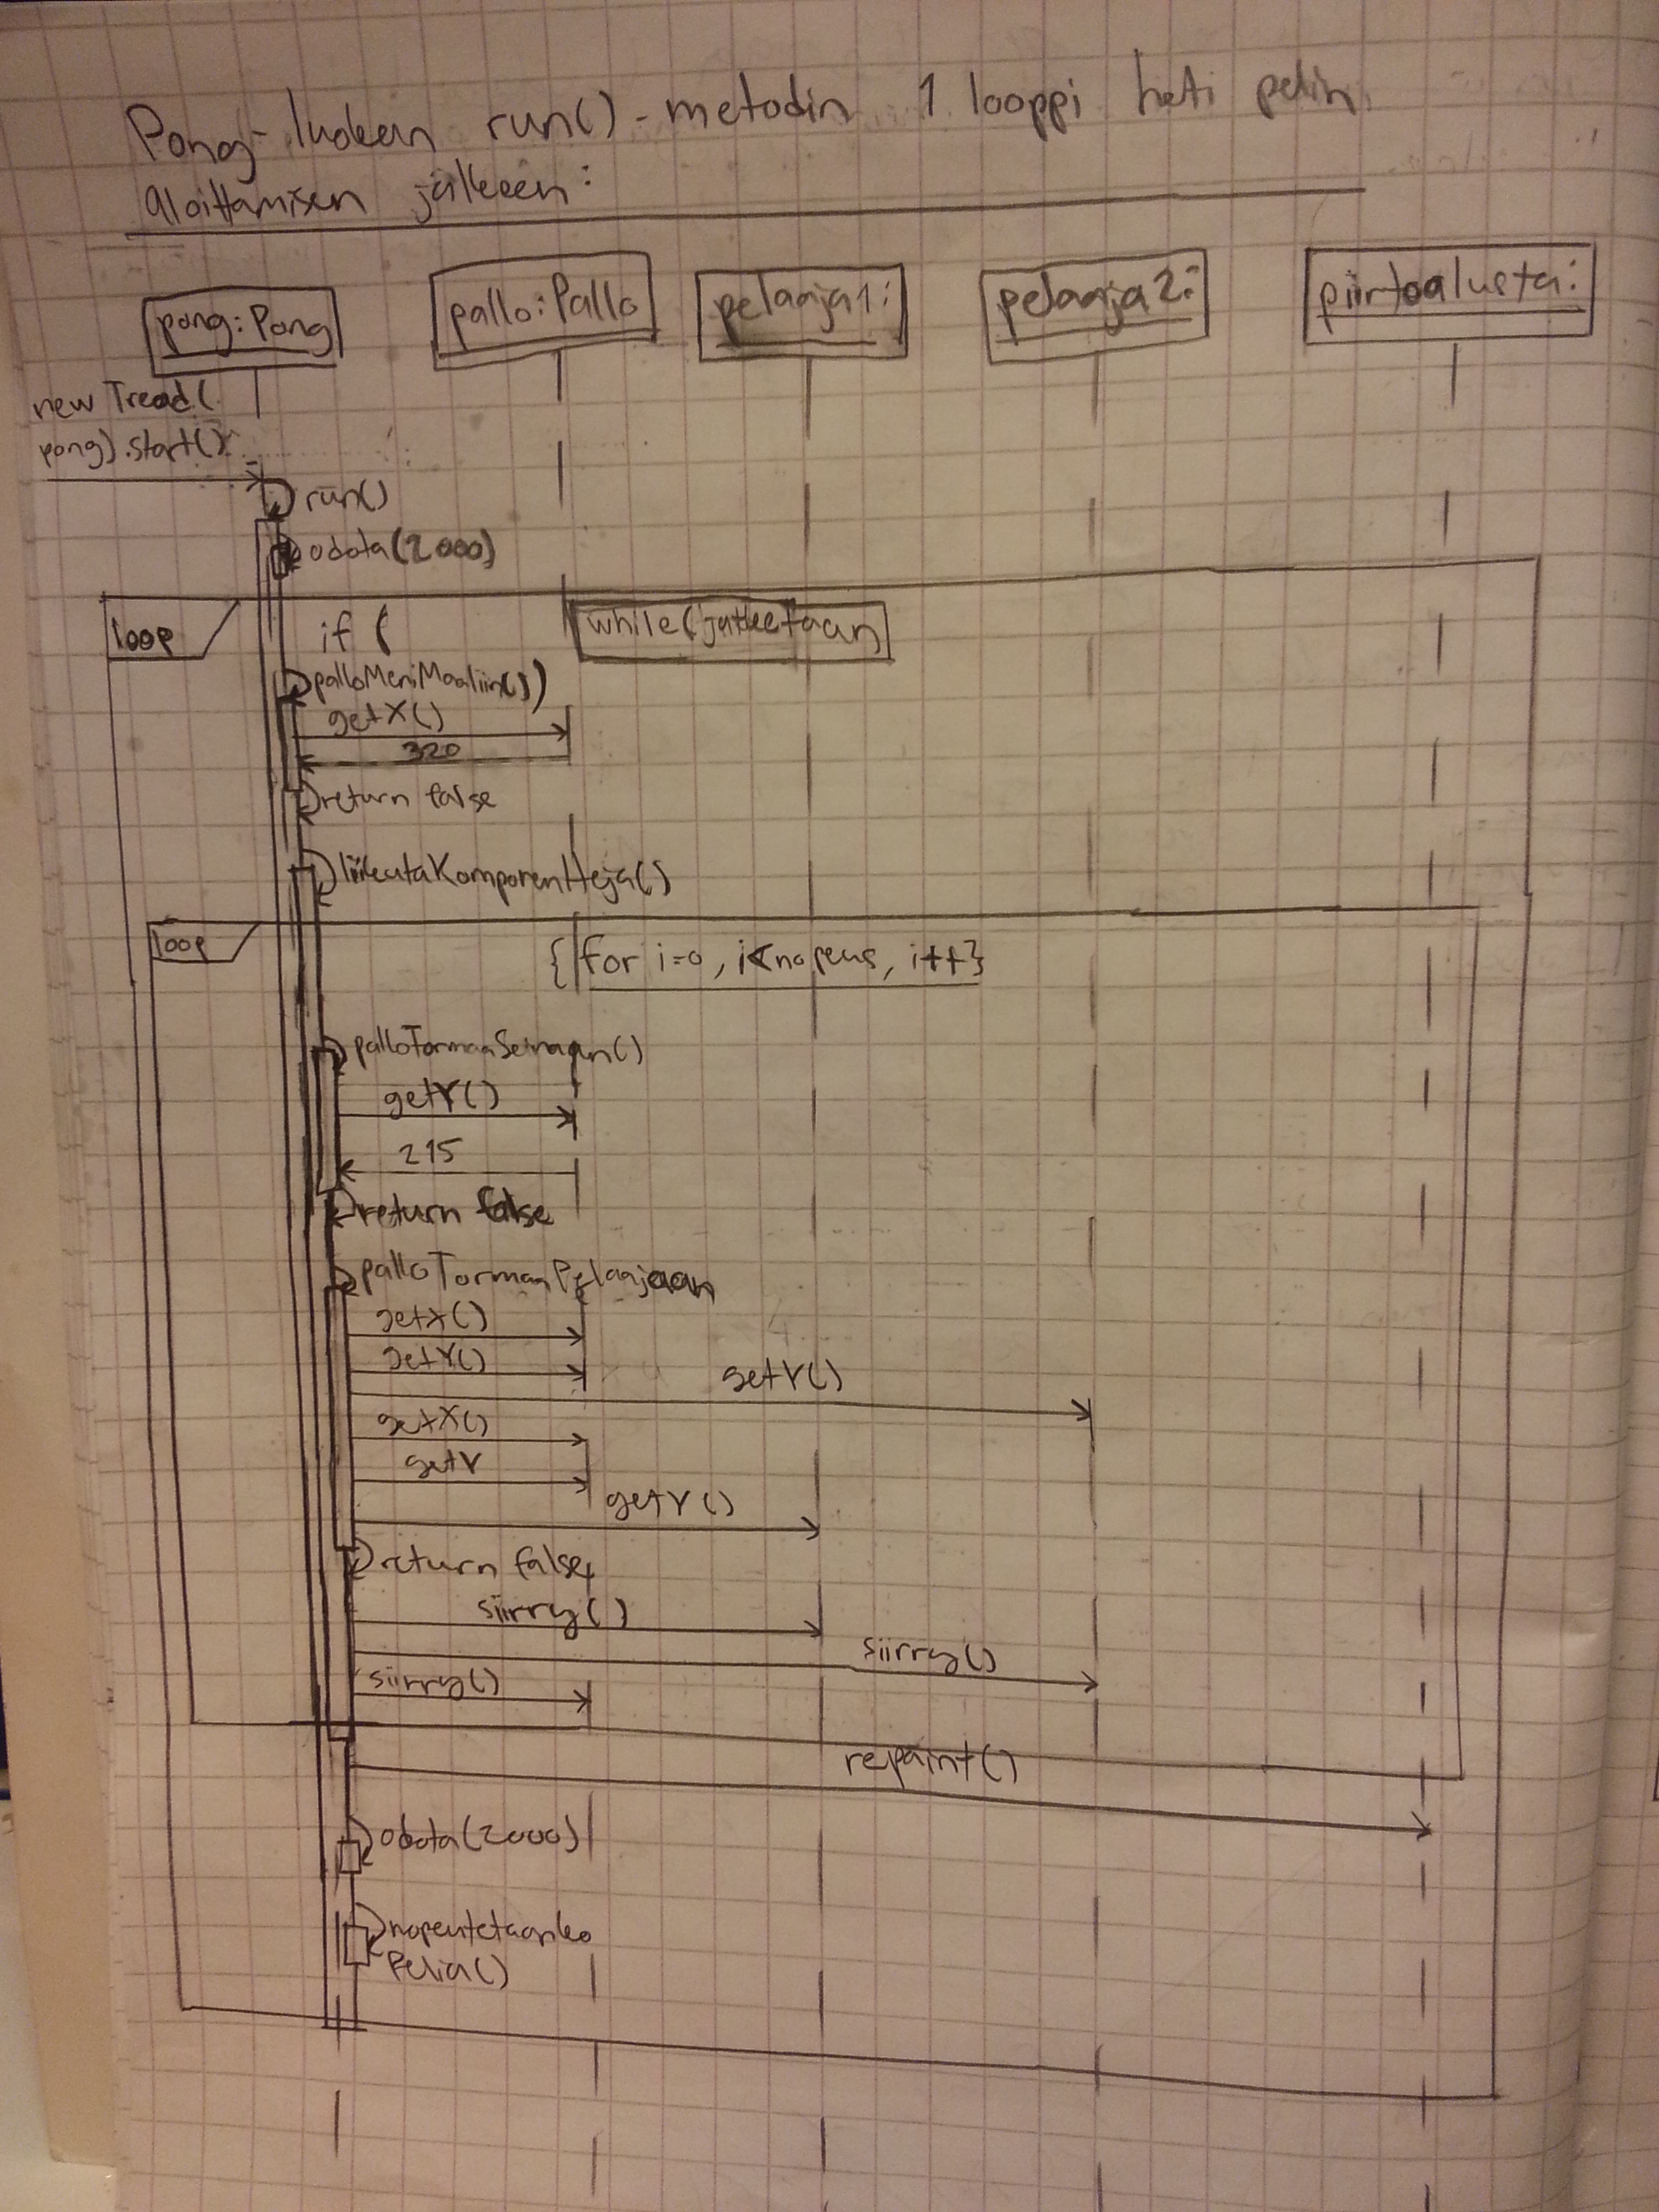 Pong-luokan run()-metodin 1 looppi heti pelin
aloittamisen jälkeen:
pong:Pong
pallo:Pallo
pelaaja1:
pelaaja2:
piirtoalusta:
new Tread(
pong).start()
run()
odota(2000)
loop
if (
while(jatketaan
palloMeniMaaliin())
getX()
320
return false
liikutaKomponentteja()
loop
{for i=0, i<nopeus, i++}
palloTormaaSeinaan()
getY()
215
return false
palloTormaaPelaajaan
getX()
getY()
getY()
getX()
getY
getY()
return false
siirry()
siirry()
siirry()
repaint()
odota(2000)
nopeutetaanko
Pelia()